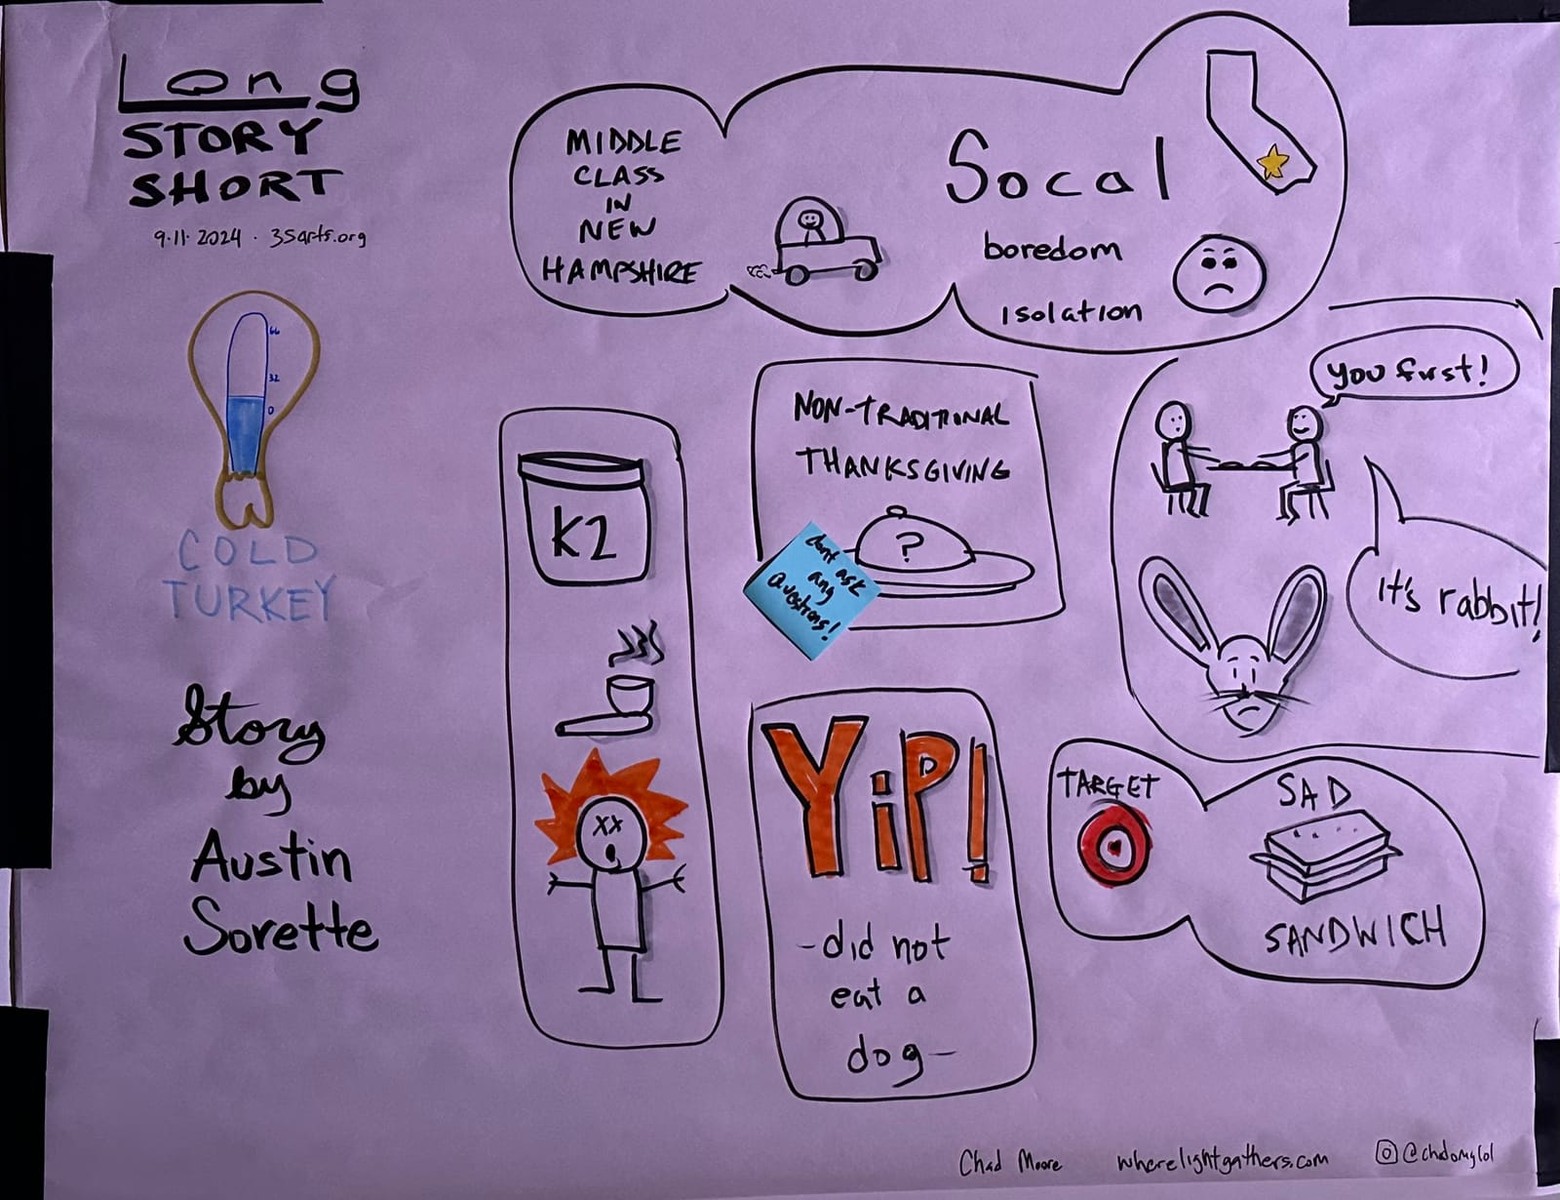 Long
STORY
SHORT
9.11.2024 . 3Sarts.org
66
32
0
COLD
TURKEY
Story
by
Austin
Sorette
MIDDLE
CLASS
IN
NEW
HAMPSHIRE
Socal
boredom
isolation
K2
XX
NON-TRADITIONAL
THANKSGIVING
?
dont ask
any
Questions!
you first!
it's rabbit!
YiP!
-did not
eat a
dog-
TARGET
SAD
SANDWICH
Chad Moore
wherelightgathers.com